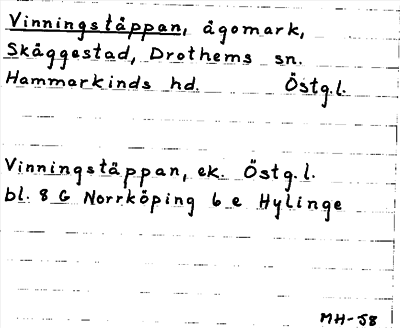 Vinningstäppan, ägomark,
Skäggestad, Drothems sn.
Hammarkinds hd. Östg.l.
Vinningstäppan, ek. Östg.l.
bl. 8 G Norrköping 6 e Hylinge
MH-58